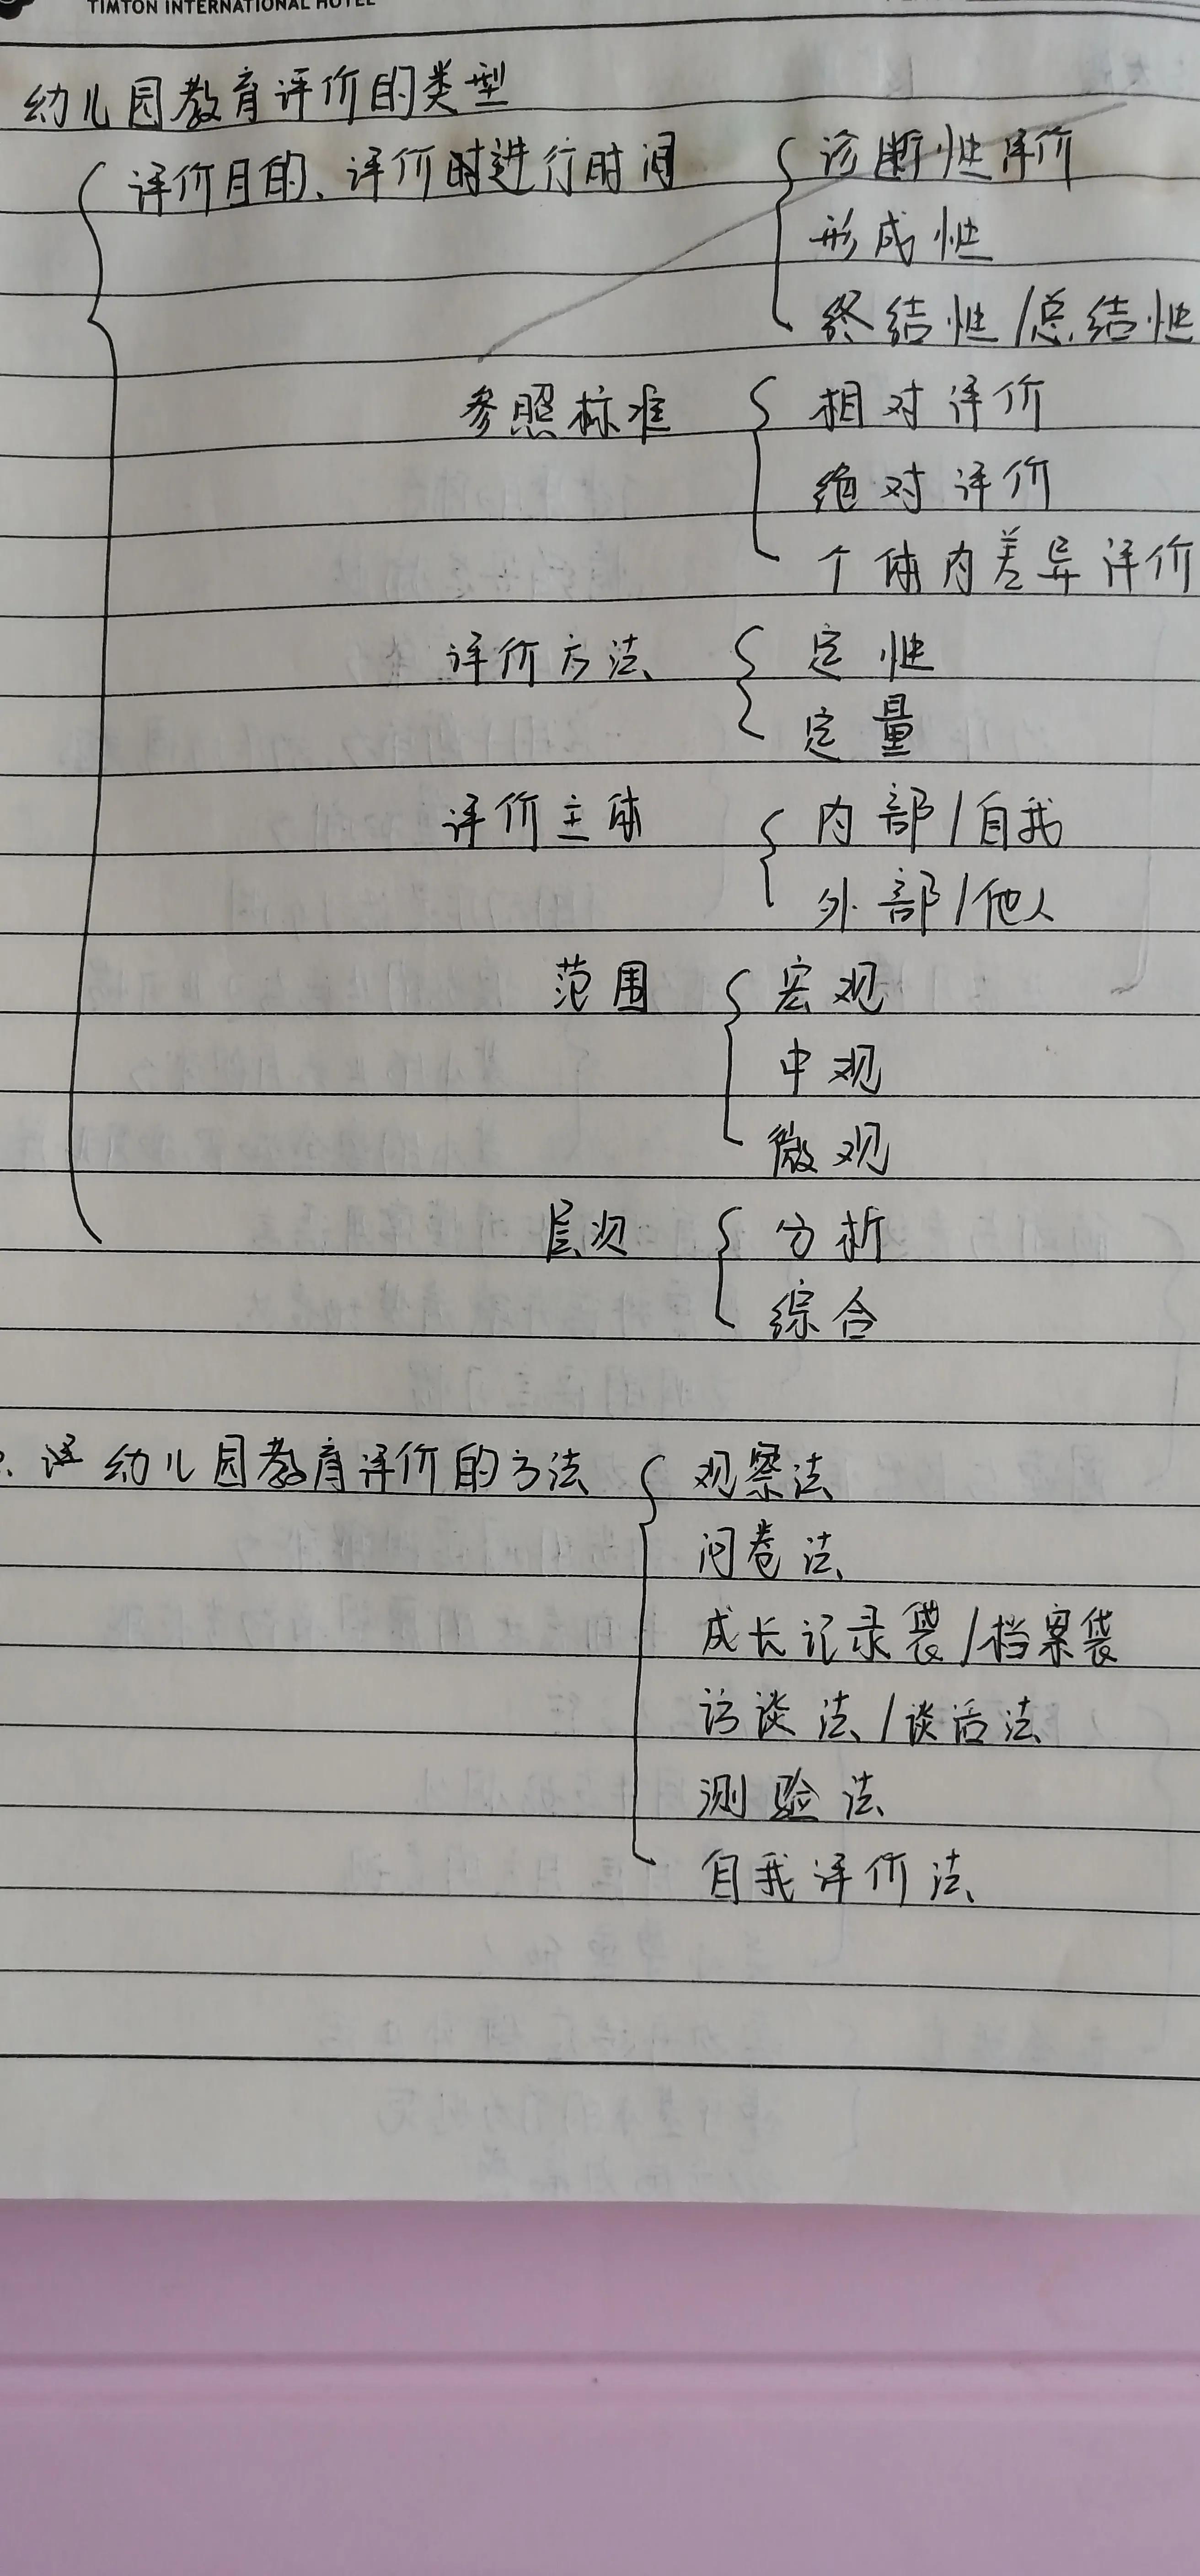 TIMTON INTERNATIONAL HOTEL
幼儿园教育评价的类型
评价目的、评价时进行时间 诊断性评价
形成性
终结性/总结性
参照标准 相对评价
绝对评价
个体内差异评价
评价方法 定性
定量
评价主体 内部/自我
外部/他人
范围 宏观
中观
微观
层次 分析
综合
幼儿园教育评价的方法 观察法
问卷法
成长记录袋/档案袋
访谈法/谈话法
测验法
自我评价法